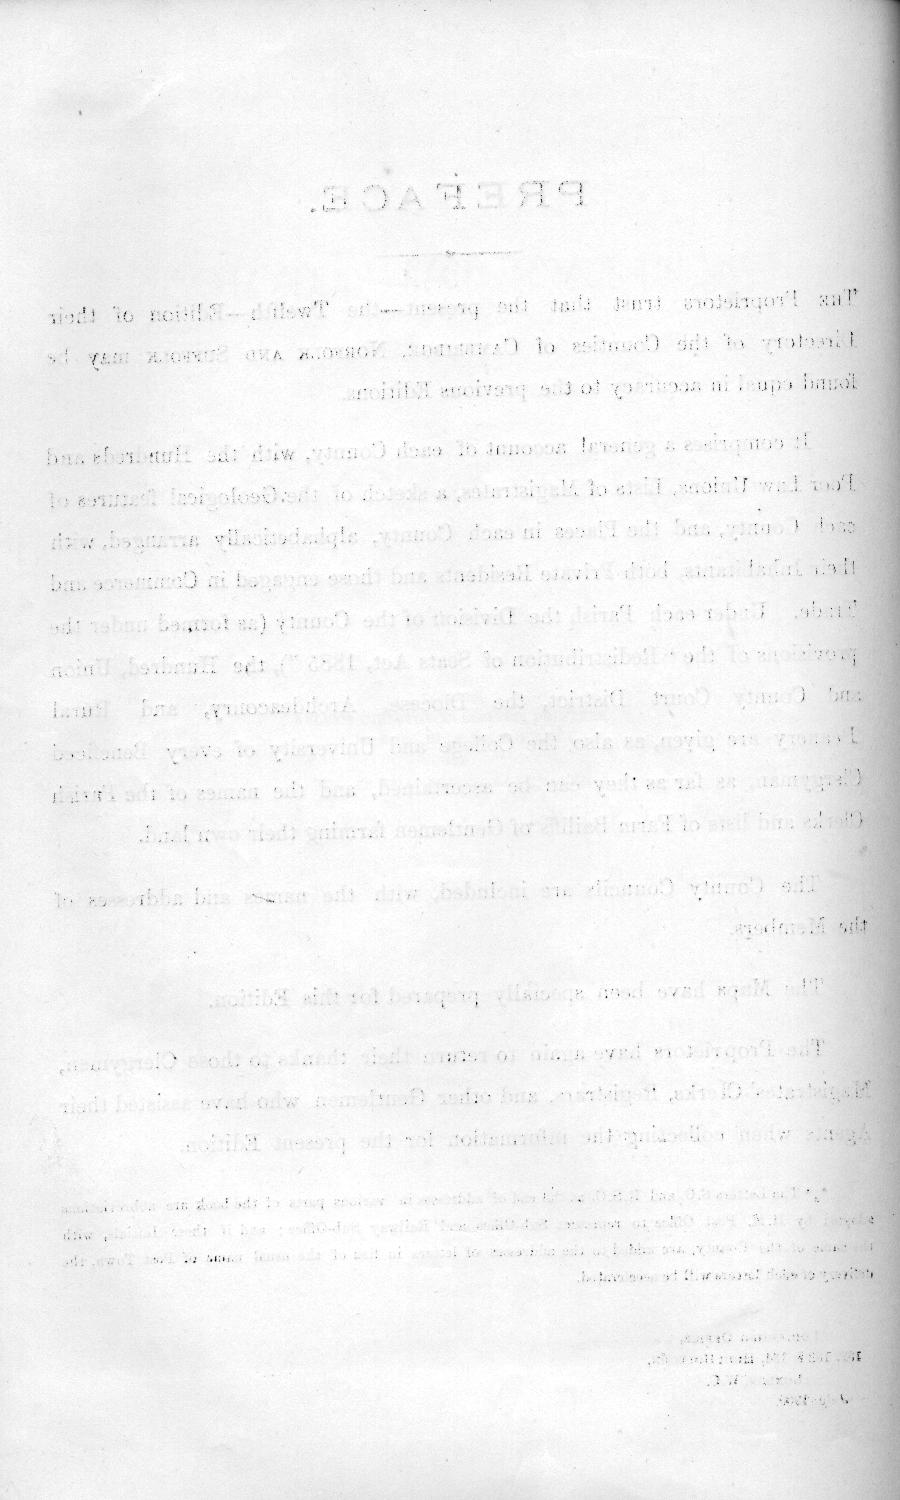 PREFACE.
THE Proprietors trust that the present—the Twelfth—Edition of their
Directory of the Counties of CAMBRIDGE, NORFOLK AND SUFFOLK may be
found equal in accuracy to the previous Editions.
It comprises a general account of each County, with the Hundreds and
Poor Law Unions, Lists of Magistrates, a sketch of the Geological features of
each County, and the Places in each County, alphabetically arranged, with
their Inhabitants, both Private Residents and those engaged in Commerce and
Trade. Under each Parish the Division of the County (as formed under the
provisions of the "Redistribution of Seats Act, 1885"), the Hundred, Union
and County Court District, the Diocese, Archdeaconry, and Rural
Deanery are given, as also the College and University of every Beneficed
Clergyman, as far as they can be ascertained, and the names of the Parish
Clerks and lists of Farm Bailiffs of Gentlemen farming their own land.
The County Councils are included, with the names and addresses of
the Members.
The Maps have been specially prepared for this Edition.
The Proprietors have again to return their thanks to those Clergymen,
Magistrates' Clerks, Registrars, and other Gentlemen who have assisted their
Agents when collecting the information for the present Edition.
The Letters S.O. and R.S.O. at the end of addresses in various parts of the book are abbreviations
adopted by H.M. Post Office to represent Sub-Office and Railway Sub-Office; and if these initials, with
the name of the County, are added to the addresses of letters in lieu of the usual name of Post Town, the
delivery of such letters will be accelerated.
High Holborn,
London, W.C.